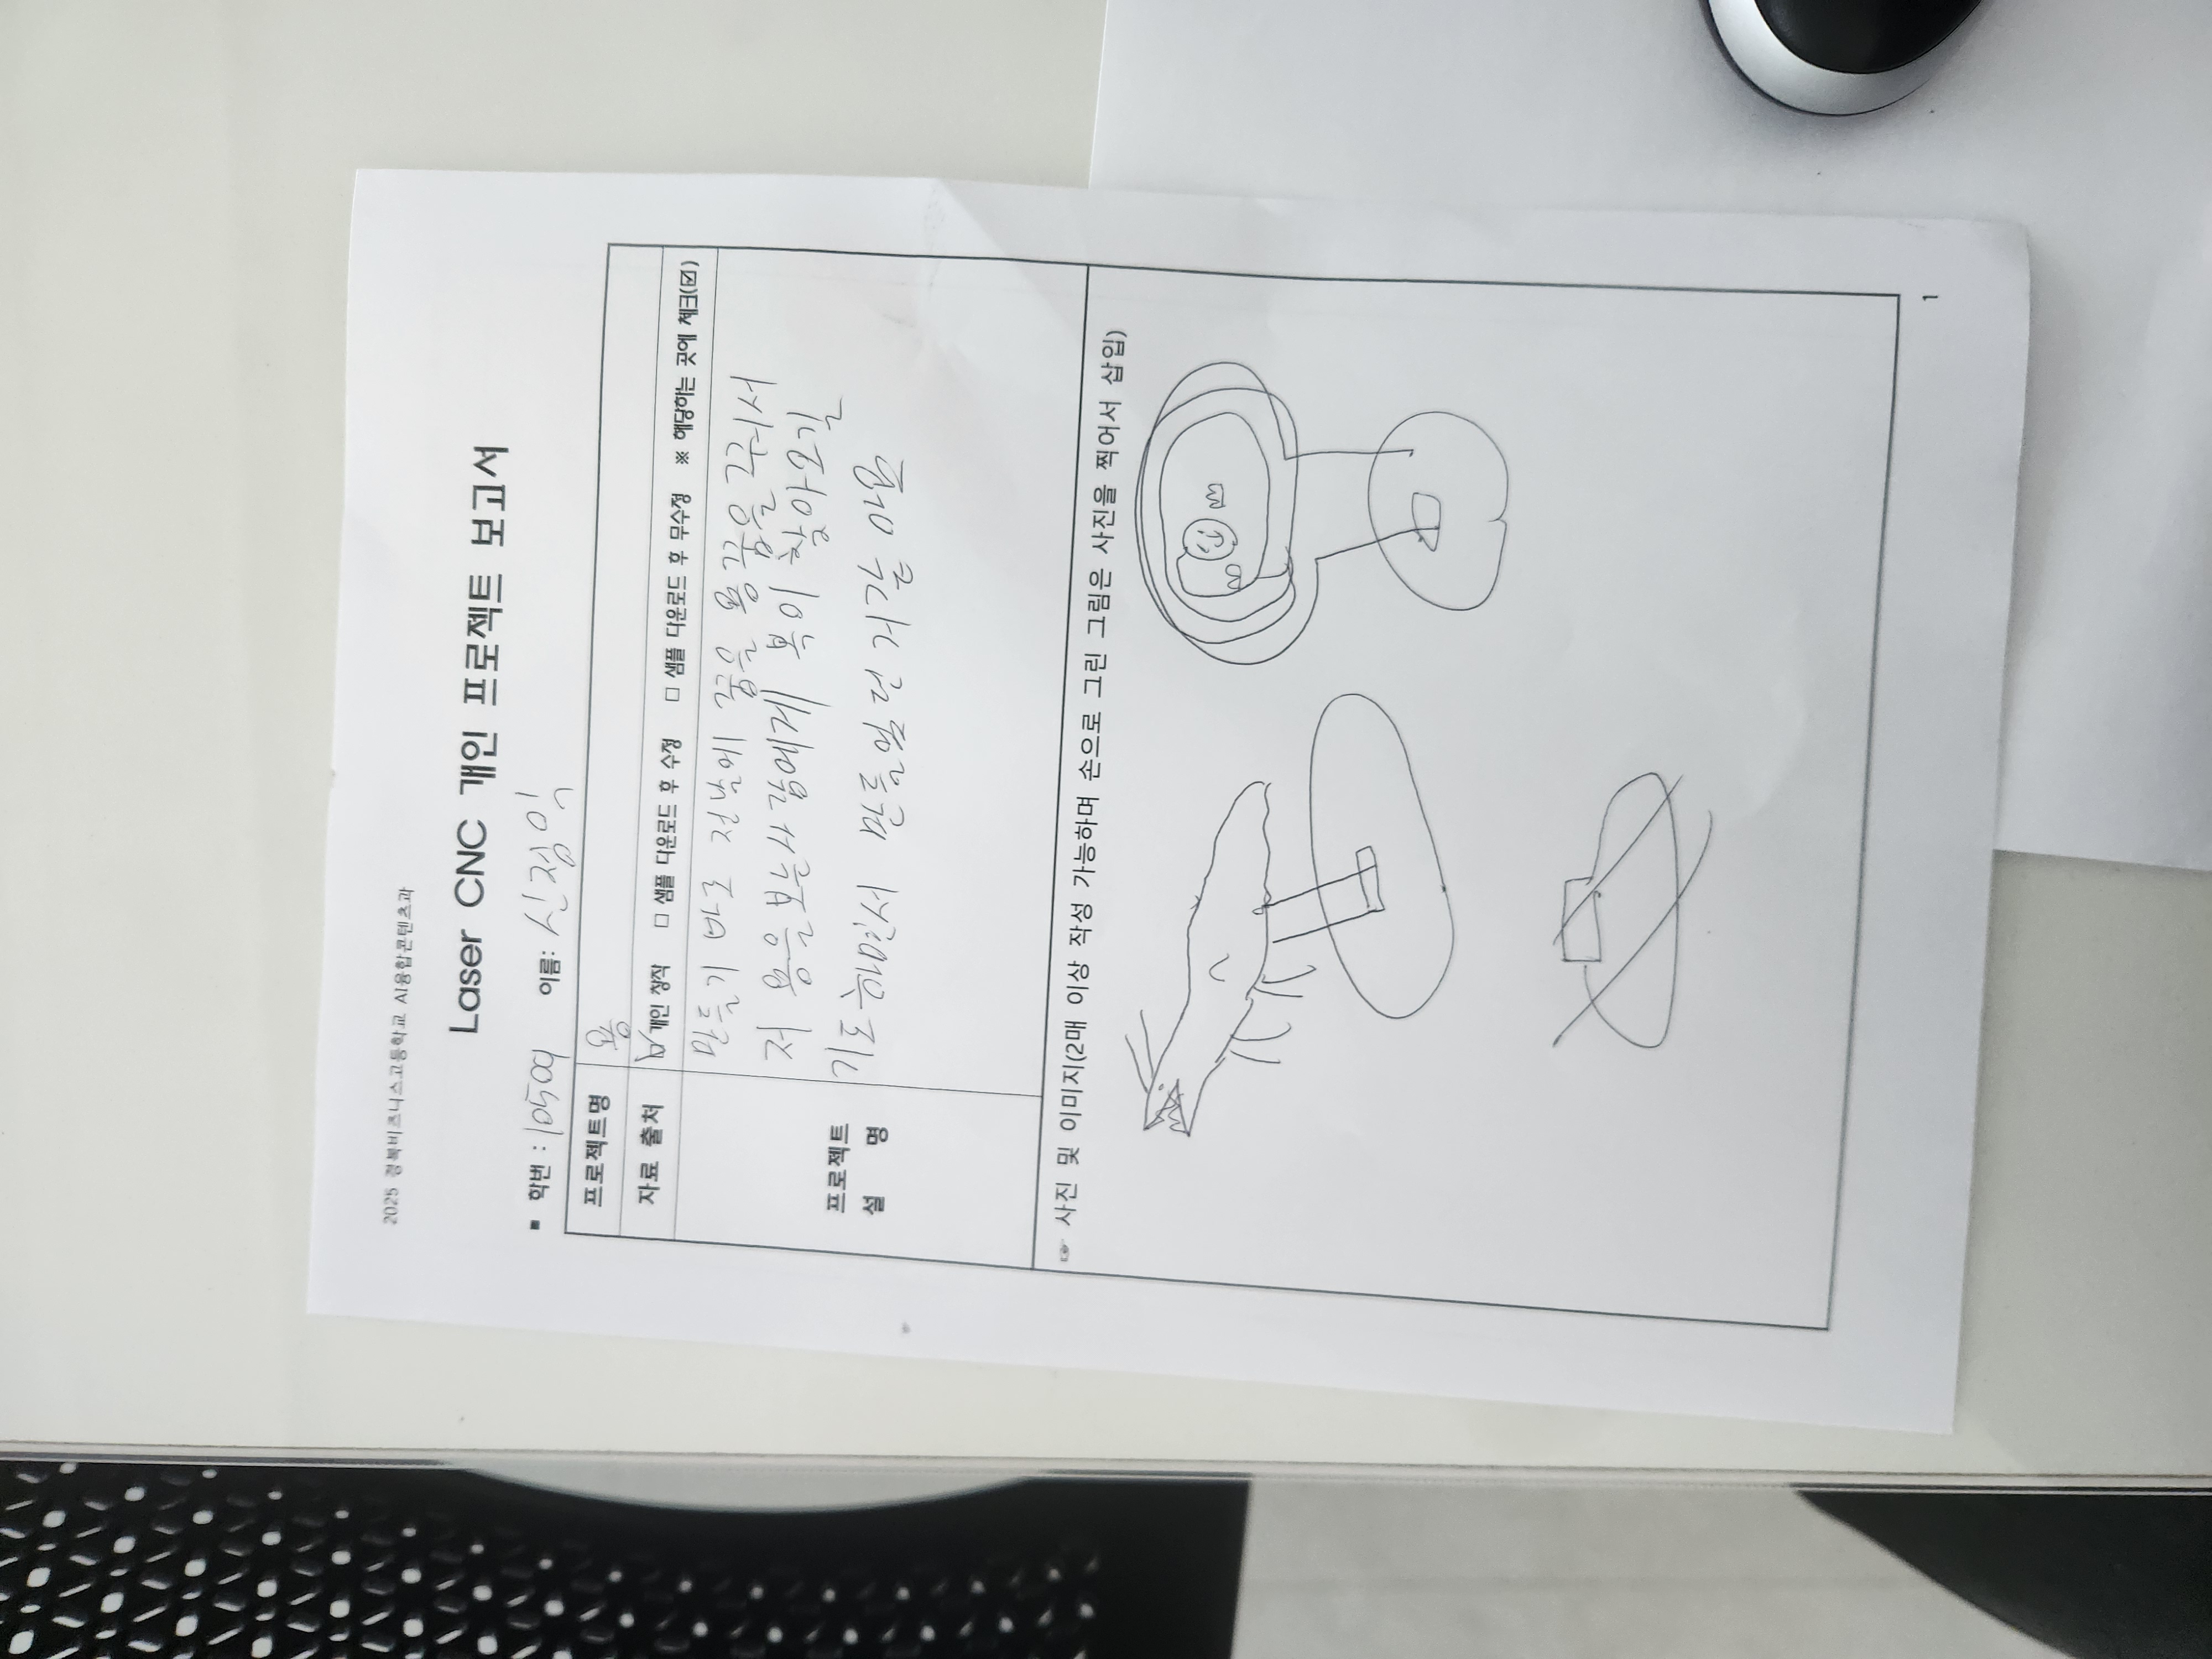 2025 경북비즈니스고등학교 AI융합콘텐츠과
Laser CNC 개인 프로젝트 보고서
▪ 학번 : 10509 이름: 신정익
프로젝트명 용
자료 출처 ☑ 개인 창작 □ 샘플 다운로드 후 수정 □ 샘플 다운로드 후 무수정 ※ 해당하는 곳에 체크(☑)
프로젝트
설 명
만들기 바로 전날에 꿈을 용꿈을 꿔서
저 용을보는사람에게 복이 찾아오길
기도하면서 만들었던 거같 아요
☞ 사진 및 이미지(2매 이상 작성 가능하며 손으로 그린 그림은 사진을 찍어서 삽입)
1